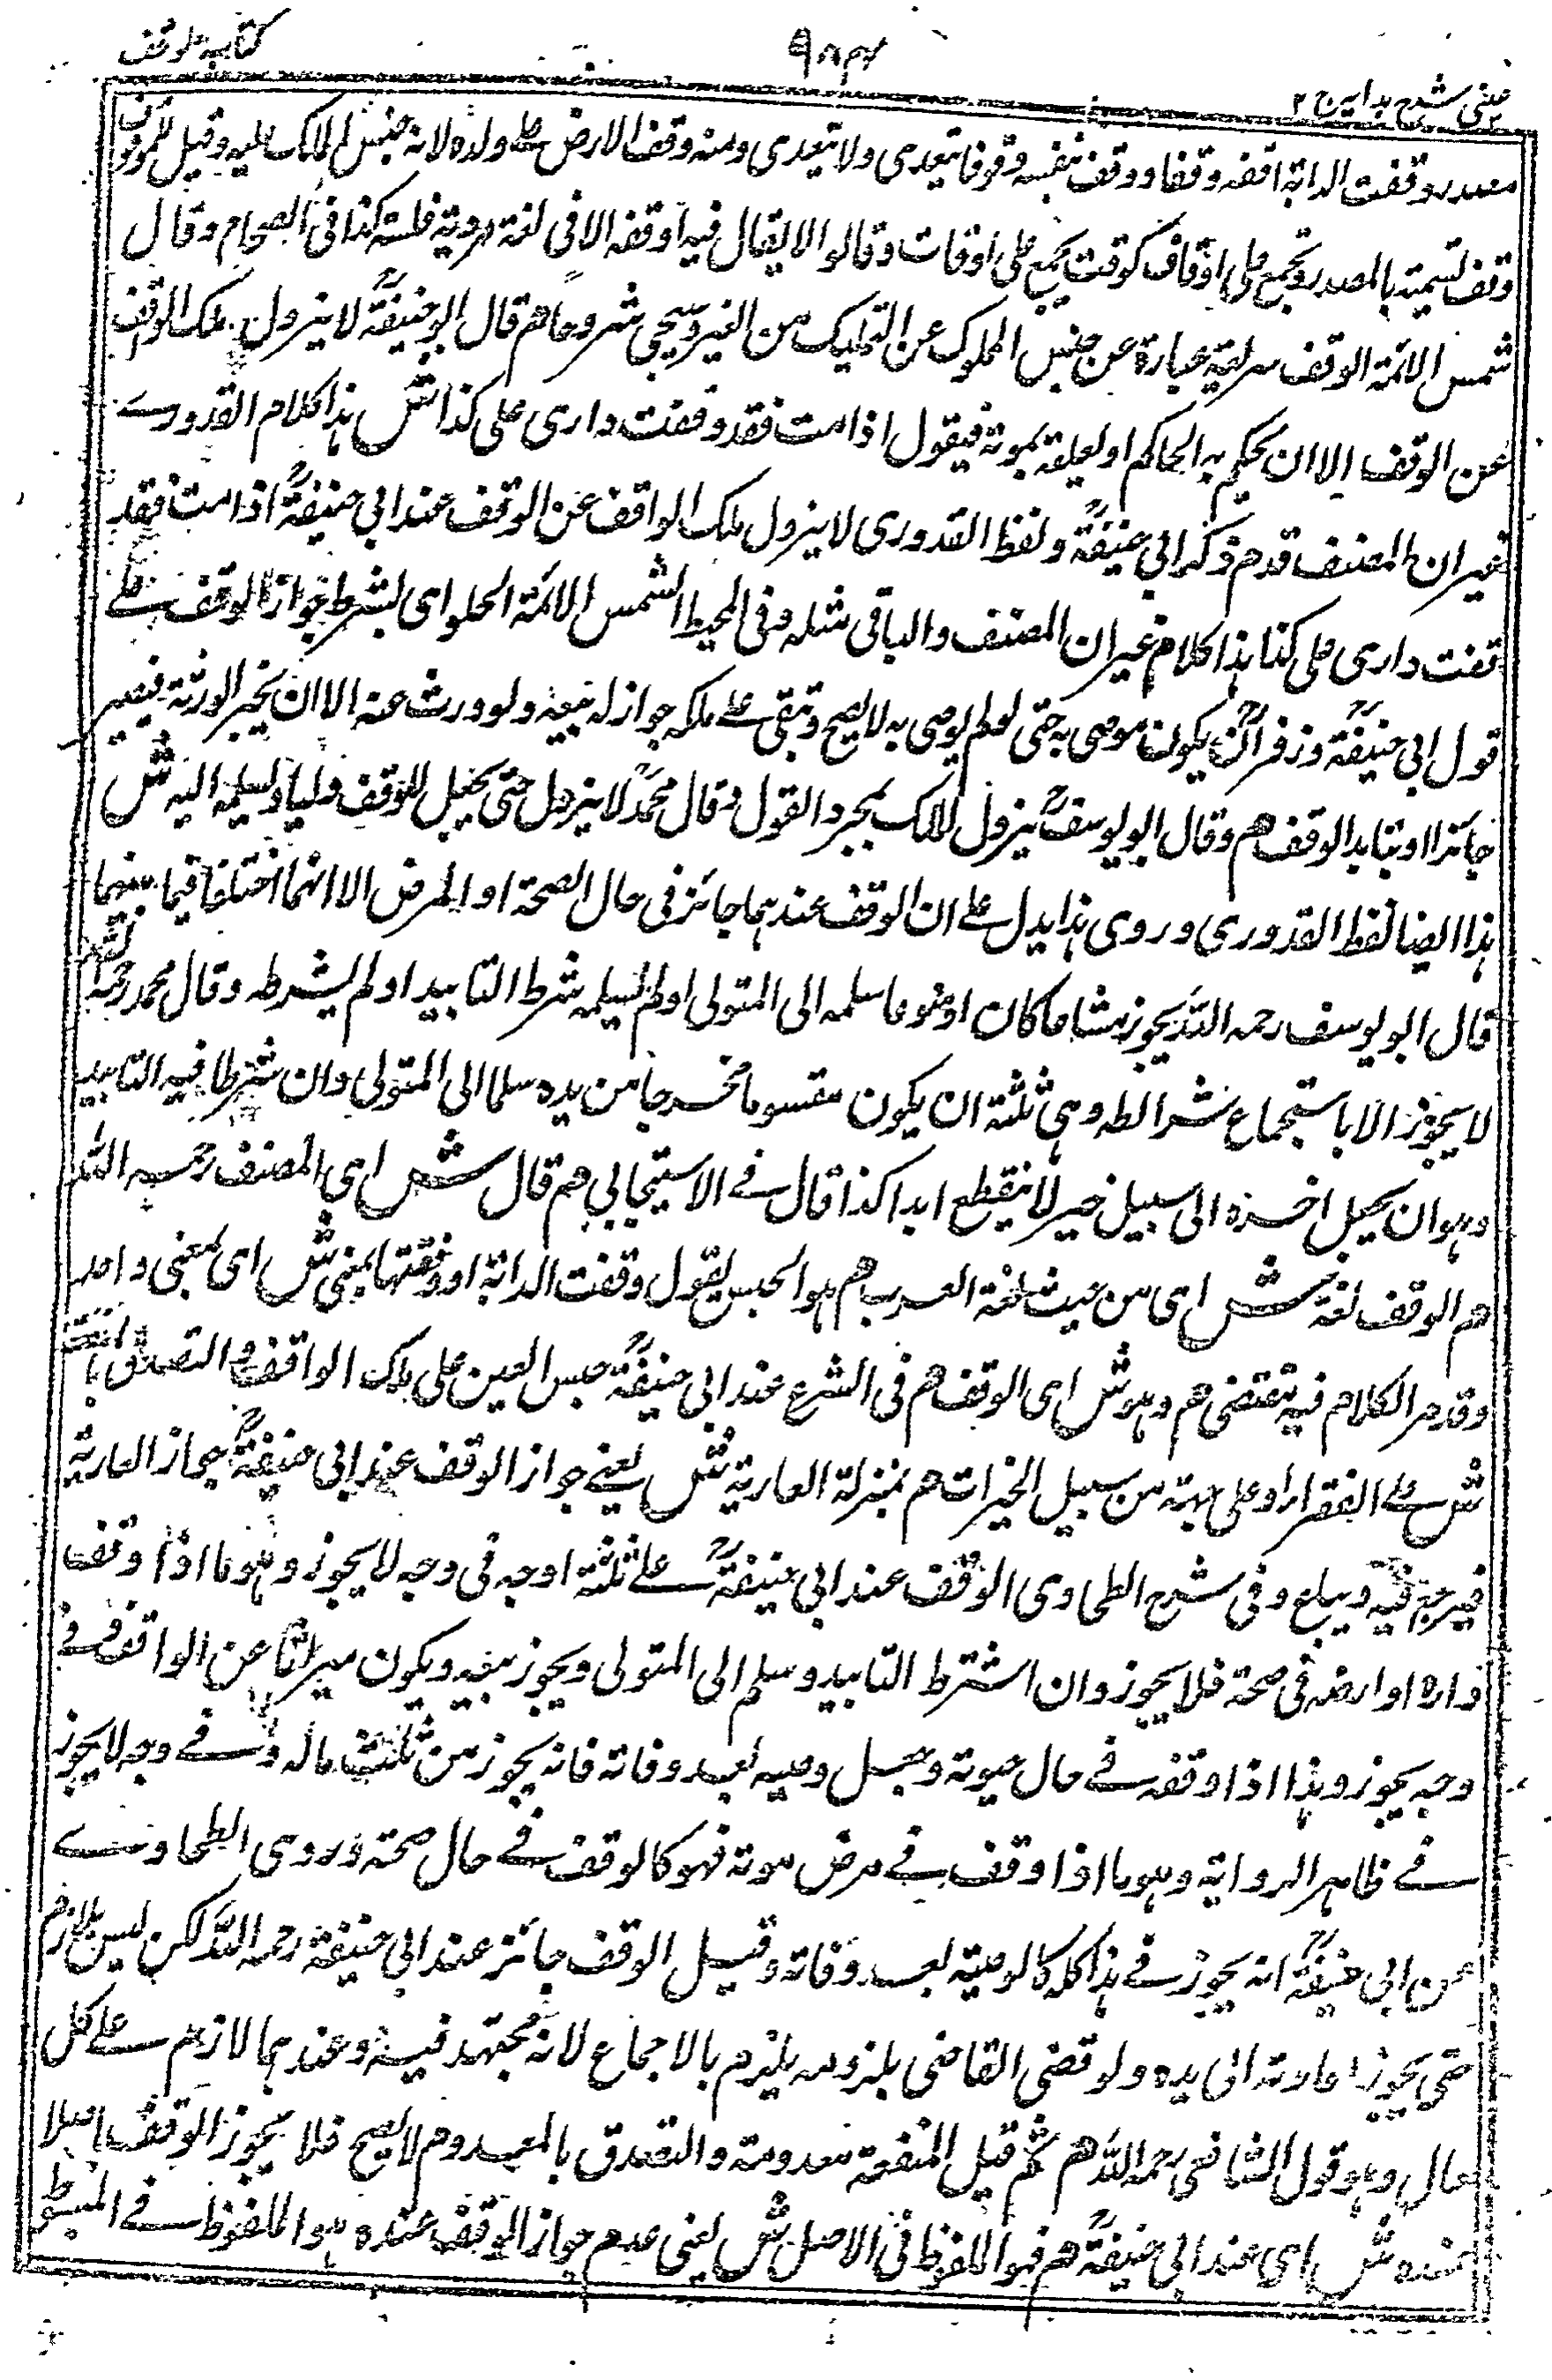 عینی شرح ہدایہ ج ٢
٩٨٢
کتاب الوقف
مصدر وقفت الدابة اقفه وقفا ووقف بنفسه وقوفا يتعدى ولا يتعدى ومنه وقف الارض على ولده لانه حبس لملاك عليه وقيل للموقوف
وقف تسمية بالمصدر ويجمع على اوقاف كوقت يجمع على اوقات وقالوا لا يقال فيه اوقفه الا فى لغة ردية فلست كذا فى الصحاح وقال
شمس الائمة الوقف شريعة عبارة عن حبس المملوك عن التمليك من الغير وسيجى شروحا هم قال ابو حنيفة لا يزول ملك الواقف
عن الوقف الا ان يحكم به الحاكم او يعلقه بموته فيقول اذا مت فقد وقفت دارى على كذا ش هذا كلام القدورے
غير ان المصنف قدم ذكر ابى حنيفة ولفظ القدورى لا يزول ملك الواقف عن الوقف عند ابى حنيفة اذا مت فقد
وقفت دارى على كذا هذا كلام غير ان المصنف والباقى مثله وفى المحيط الشمس الائمة الحلواى بشرط جواز الوقف علے
قول ابى حنيفة وزفر ان يكون موصى به حتى لو لم يوصى به لا يصح وتبقى على ملكه جواز له بيعه ولو ورث عنه الا ان يخير الورثة فيصير
جائزا او بتابد الوقف هم وقال ابو يوسف يزول الملك بمجرد القول وقال محمد لا يزول حتى يجعل للوقف وليا ويسلمه اليه ش
هذا ايضا لفظ القدورى وروى هذا يدل على ان الوقف عندهما جائز فى حال الصحة او المرض الا انهما اختلفا فيما بينهما
قال ابو يوسف رحمه الله يجوز مشاعا كان او مفروعا سلمه الى المتولى او لم يسلمه شرط التابيد او لم يشرطه وقال محمد رحمه الله
لا يجوز الا باستجماع شرائطه وهى ثلثة ان يكون مقسوما مخرجا من يده سلما الى المتولى وان شرطا فيه التابيد
وهو ان يجعل اخره الى سبيل خير لا ينقطع ابدا كذا قال فے الاسبيجابى هم قال ش اى المصنف رحمه الله
هم الوقف لغة ش اى من حيث لغة العرب هم هو الحبس يقول وقفت الدابة او وقفتها بمعنى ش اى بمعنى واحد
وقد مر الكلام فيه بمقتضى هم وهو ش اى الوقف هم فى الشرع عند ابى حنيفة حبس العين على ملك الواقف والتصدق بالمنفعة
ش علے الفقراء او على جهة من سبيل الخيرات هم بمنزلة العارية ش يعنے جواز الوقف عند ابى حنيفة جواز العارية
فيرجع فيه ويباع وفى شرح الطحاوى الوقف عند ابى حنيفة علے ثلثة اوجه فى وجه لا يجوز وهو ما اذا وقف
داره او ارضه فى صحة فلا يجوز وان اشترط التابيد وسلم الى المتولى ويجوز بيعه ويكون ميراثا عن الواقف فے
وجه يجوز وهذا اذا وقفه فے حال حيوته وجعل وصيه بعد وفاته فانه يجوز من ثلث ماله وفے وجه لا يجوز
فے ظاهر الرواية وهو ما اذا وقف فے مرض موته فهو كالوقف فے حال صحته وروى الطحاوے
عن ابى حنيفة انه يجوز فے هذا كله كالوصية بعد وفاته وقيل الوقف جائز عند ابى حنيفة رحمه الله لكن ليس بلازم
حتى يجوز اعادته الى يده ولو قضى القاضى بلزومه يلزم بالاجماع لانه مجتهد فيه وعندهما لازم علے كل
حال وهو قول الشافعى رحمه الله هم ثم قيل المنفعة معدومة والتصدق بالمعدوم لا يصح فلا يجوز الوقف اصلا
عنده ش اى عند ابى حنيفة هم فهو الملفوظ فى الاصل ش يعنى عدم جواز الوقف عنده هو الملفوظ فے المبسوط